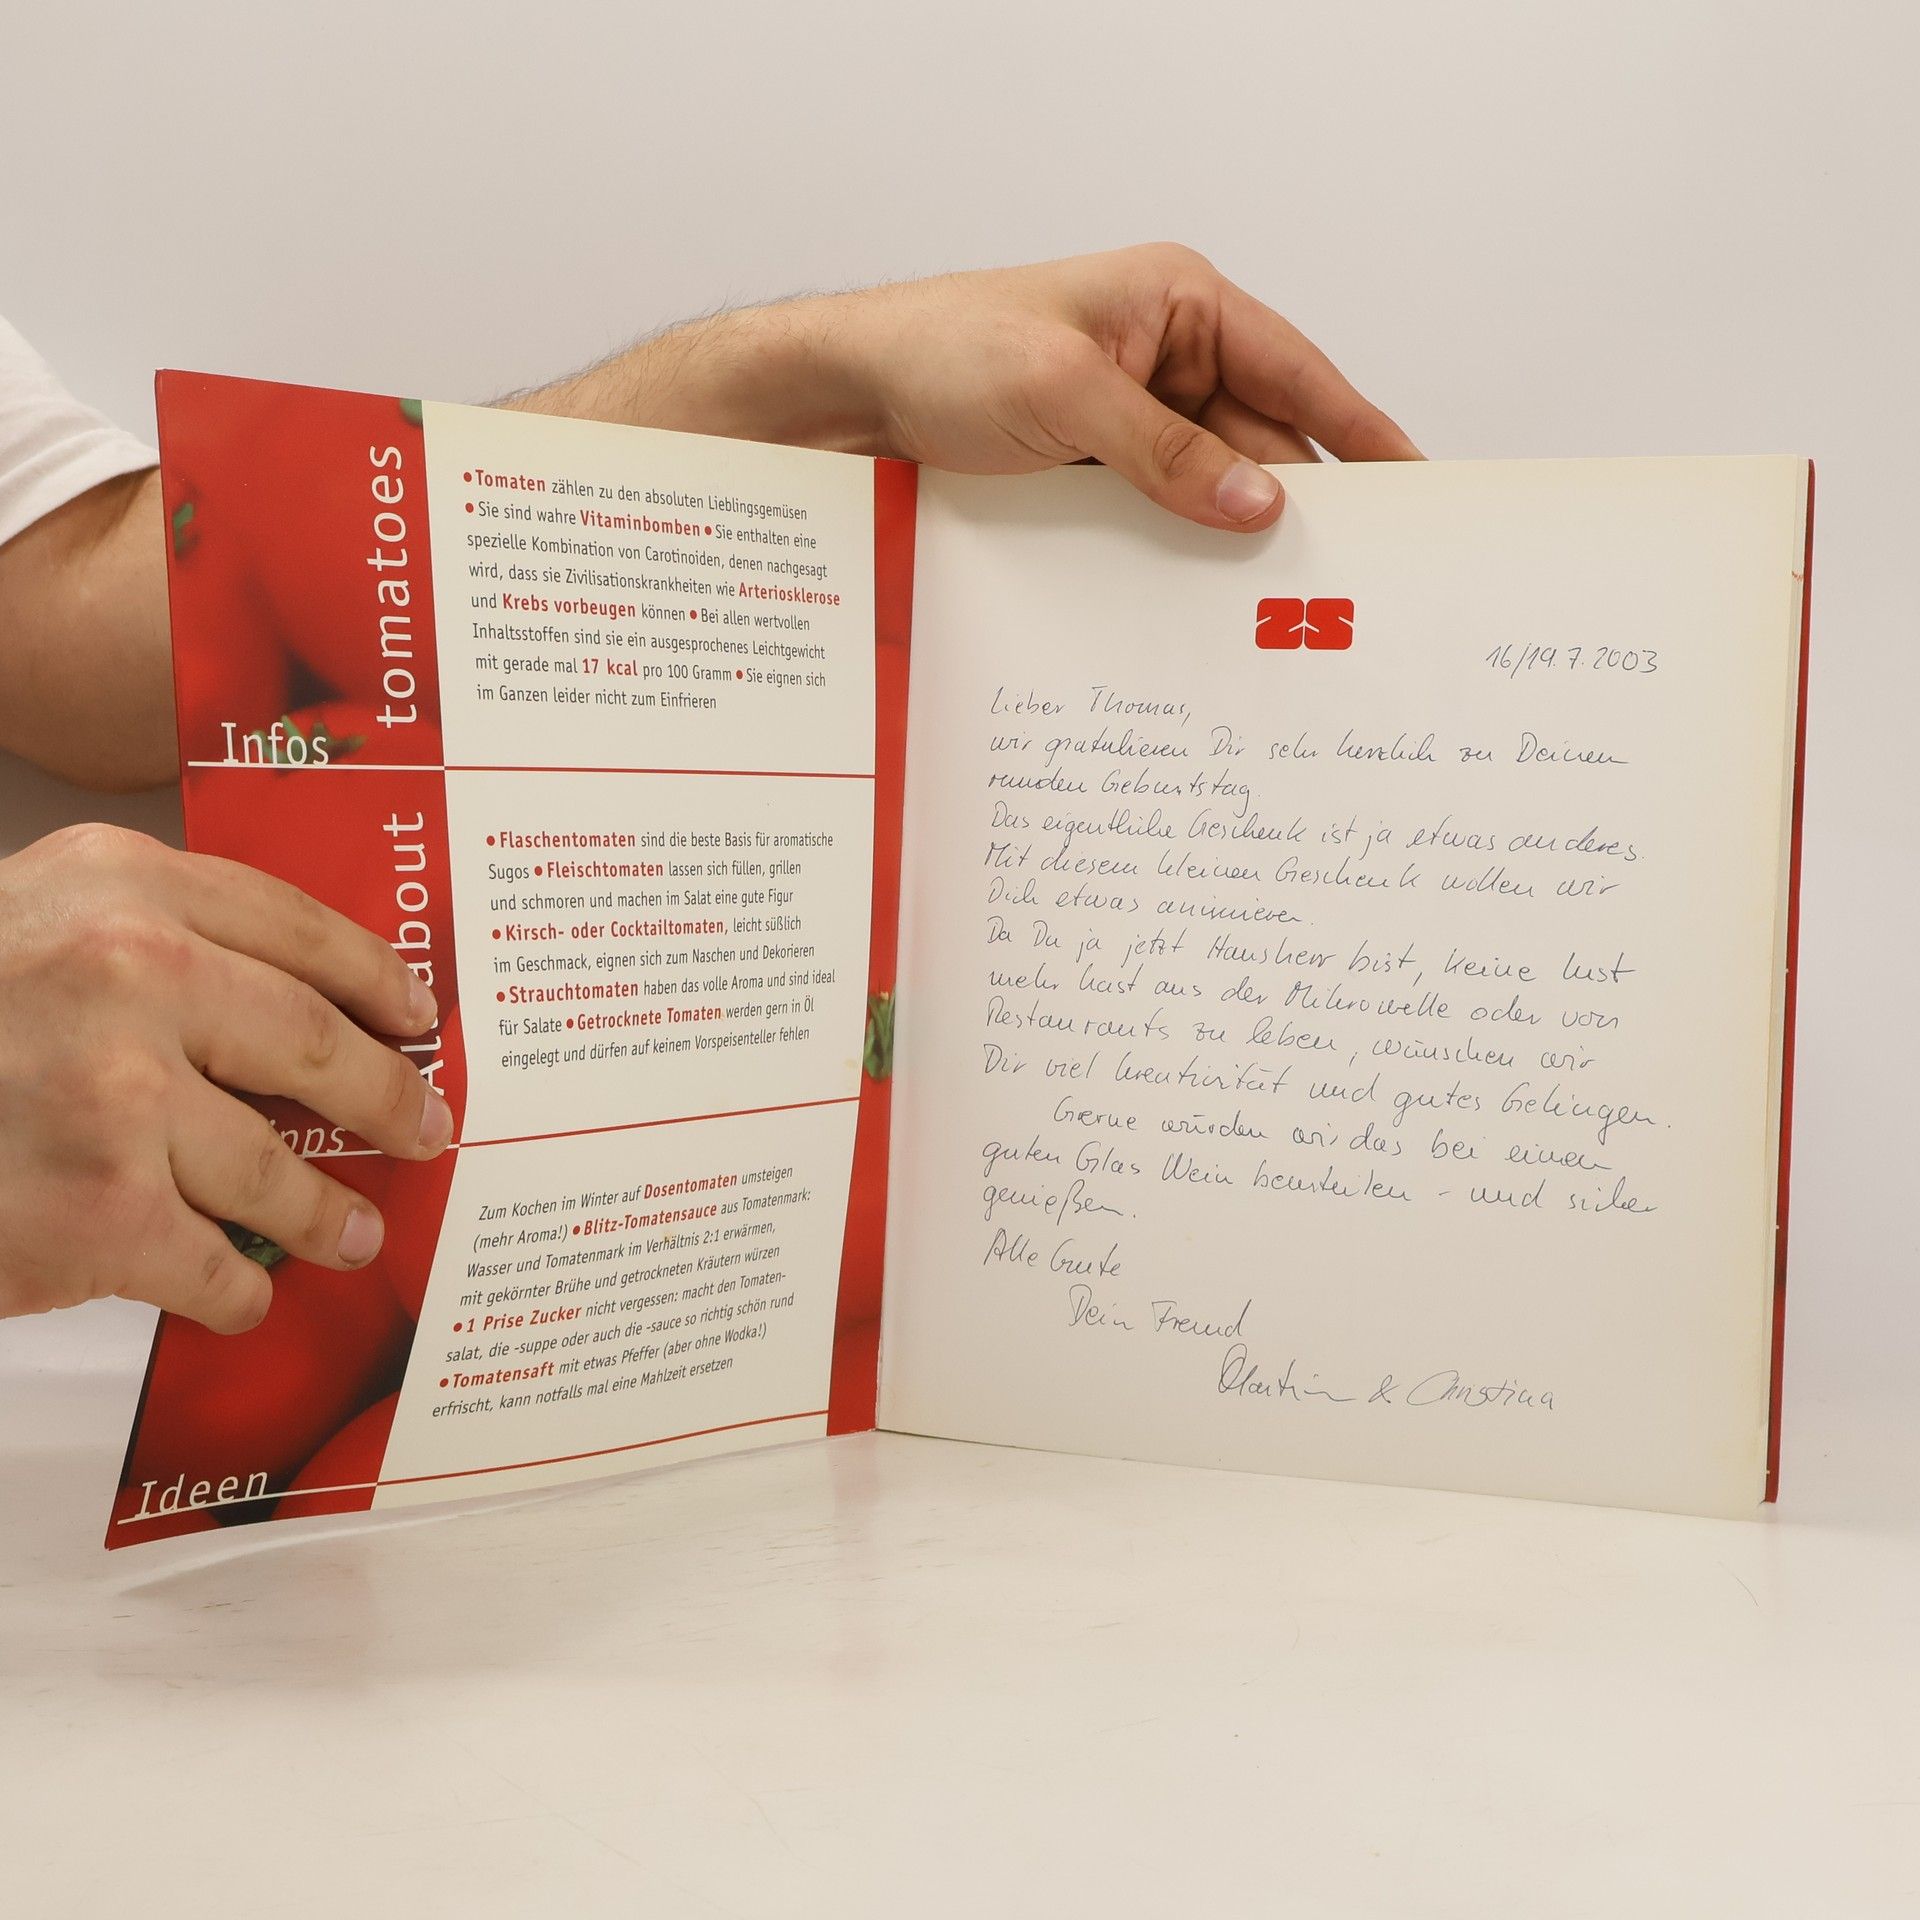 Infos
All about tomatoes
• Tomaten zählen zu den absoluten Lieblingsgemüsen
• Sie sind wahre Vitaminbomben • Sie enthalten eine
spezielle Kombination von Carotinoiden, denen nachgesagt
wird, dass sie Zivilisationskrankheiten wie Arteriosklerose
und Krebs vorbeugen können • Bei allen wertvollen
Inhaltsstoffen sind sie ein ausgesprochenes Leichtgewicht
mit gerade mal 17 kcal pro 100 Gramm • Sie eignen sich
im Ganzen leider nicht zum Einfrieren
ipps
• Flaschentomaten sind die beste Basis für aromatische
Sugos • Fleischtomaten lassen sich füllen, grillen
und schmoren und machen im Salat eine gute Figur
• Kirsch- oder Cocktailtomaten, leicht süßlich
im Geschmack, eignen sich zum Naschen und Dekorieren
• Strauchtomaten haben das volle Aroma und sind ideal
für Salate • Getrocknete Tomaten werden gern in Öl
eingelegt und dürfen auf keinem Vorspeisenteller fehlen
Ideen
Zum Kochen im Winter auf Dosentomaten umsteigen
(mehr Aroma!) • Blitz-Tomatensauce aus Tomatenmark:
Wasser und Tomatenmark im Verhältnis 2:1 erwärmen,
mit gekörnter Brühe und getrockneten Kräutern würzen
• 1 Prise Zucker nicht vergessen: macht den Tomaten-
salat, die -suppe oder auch die -sauce so richtig schön rund
• Tomatensaft mit etwas Pfeffer (aber ohne Wodka!)
erfrischt, kann notfalls mal eine Mahlzeit ersetzen
ZS
16/19.7.2003
Lieber Thomas,
wir gratulieren Dir sehr herzlich zu Deinem
runden Geburtstag.
Das eigentliche Geschenk ist ja etwas anderes.
Mit diesem kleinen Geschenk wollen wir
Dich etwas animieren.
Da Du ja jetzt Hausherr bist, keine Lust
mehr hast aus der Mikrowelle oder von
Restaurants zu leben, wünschen wir
Dir viel Kreativität und gutes Gelingen.
Gerne würden wir das bei einem
guten Glas Wein beurteilen - und sicher
genießen.
Alle Gute
Dein Freund
Martin & Christina